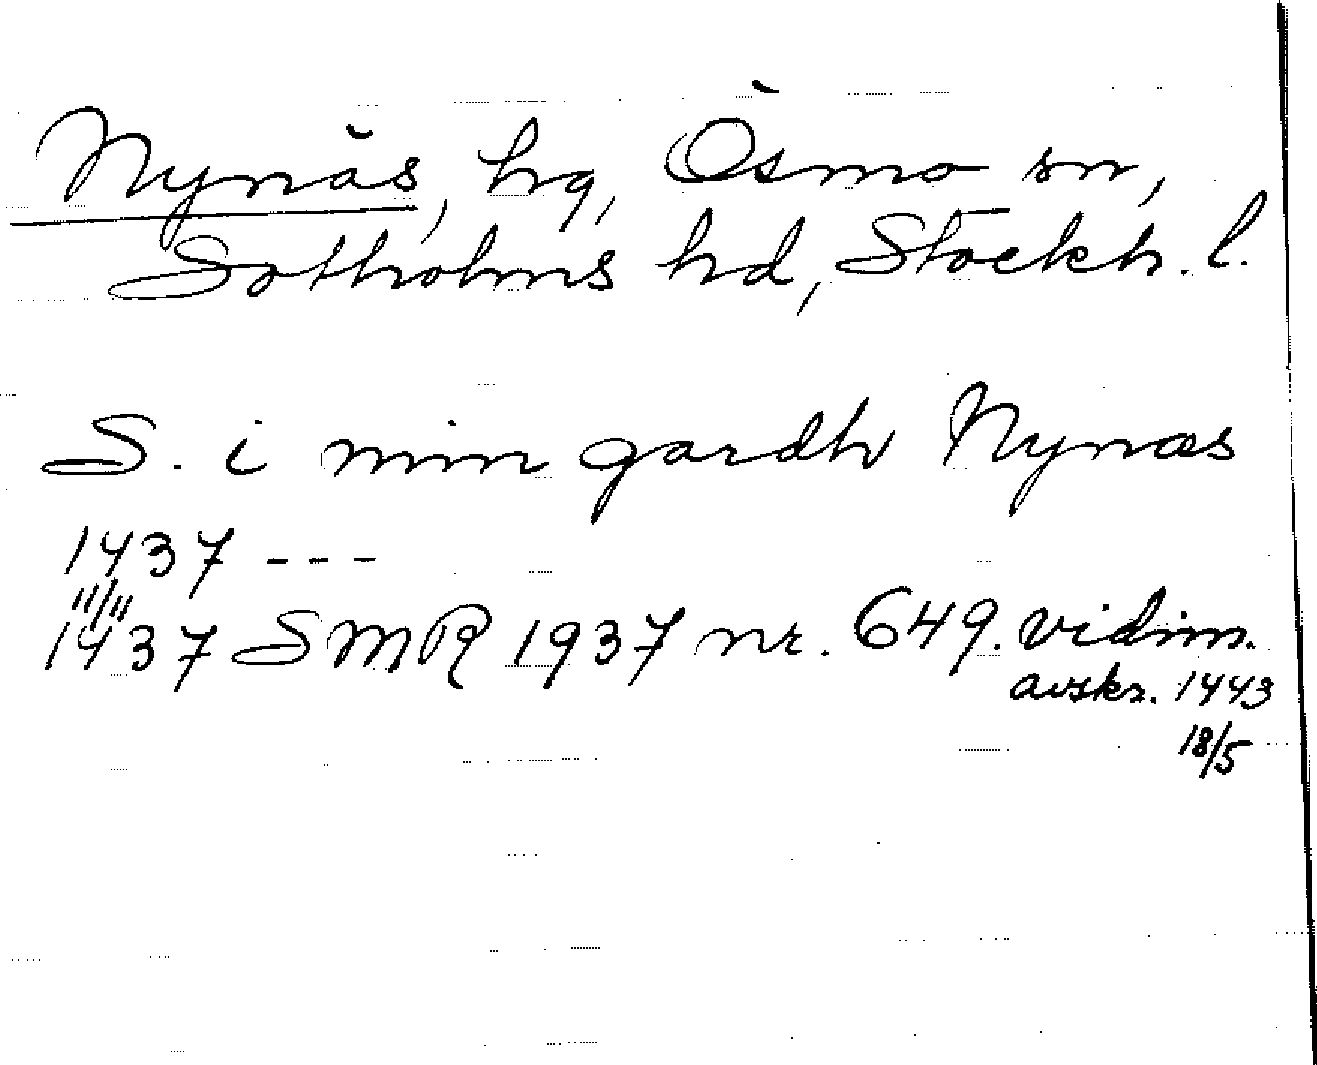 Nynäs, hg, Ösmo sn,
Sotholms hd, Stockh. l.
S. i min gardh Nynæs
1437 - - -
11/11
1437 SMR 1937 nr. 649. vidim.
avskr. 1443
18/5